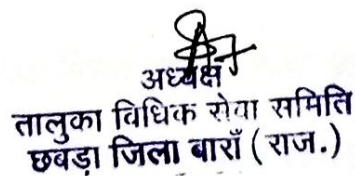 अध्यक्ष
तालुका विधिक सेवा समिति
छबड़ा जिला बाराँ (राज.)